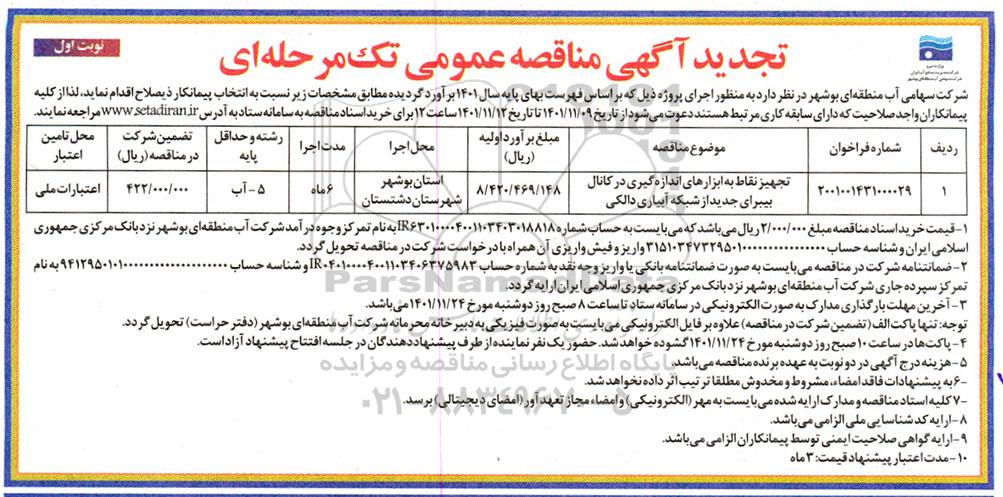 نوبت اول
وزارت نیرو
شرکت مدیریت منابع آب ایران
شرکت سهامی آب منطقه‌ای بوشهر
تجدید آگهی مناقصه عمومی تک مرحله‌ای
شرکت سهامی آب منطقه‌ای بوشهر در نظر دارد به منظور اجرای پروژه ذیل که بر اساس فهرست بهای پایه سال ۱۴۰۱ برآورد گردیده مطابق مشخصات زیر نسبت به انتخاب پیمانکار ذیصلاح اقدام نماید، لذا از کلیه
پیمانکاران واجد صلاحیت که دارای سابقه کاری مرتبط هستند دعوت می‌شود از تاریخ ۱۴۰۱/۱۱/۰۹ تا تاریخ ۱۴۰۱/۱۱/۱۲ ساعت ۱۲ برای خرید اسناد مناقصه به سامانه ستاد به آدرس www.setadiran.ir مراجعه نمایند.
ردیف | شماره فراخوان | موضوع مناقصه | مبلغ برآورد اولیه (ریال) | محل اجرا | مدت اجرا | رشته و حداقل پایه | تضمین شرکت در مناقصه (ریال) | محل تامین اعتبار
۱ | ۲۰۰۱۰۰۱۴۳۱۰۰۰۰۲۹ | تجهیز نقاط به ابزارهای اندازه گیری در کانال بیبرای جدید از شبکه آبیاری دالکی | ۸/۴۲۰/۴۶۹/۱۴۸ | استان بوشهر شهرستان دشتستان | ۶ ماه | ۵ - آب | ۴۲۲/۰۰۰/۰۰۰ | اعتبارات ملی
۱- قیمت خرید اسناد مناقصه مبلغ ۲/۰۰۰/۰۰۰ ریال می‌باشد که می‌بایست به حساب شماره IR۶۳۰۱۰۰۰۰۴۰۰۱۱۰۳۴۰۳۰۱۸۸۱۸ به نام تمرکز وجوه درآمد شرکت آب منطقه‌ای بوشهر نزد بانک مرکزی جمهوری
اسلامی ایران و شناسه حساب واریز و فیش واریزی آن همراه با درخواست شرکت در مناقصه تحویل گردد.
۲- ضمانتنامه شرکت در مناقصه می‌بایست به صورت ضمانتنامه بانکی یا واریز وجه نقد به شماره حساب IR۰۴۰۱۰۰۰۰۴۰۰۱۱۰۳۴۰۶۳۷۵۹۸۳ و شناسه حساب به نام
تمرکز سپرده جاری شرکت آب منطقه‌ای بوشهر نزد بانک مرکزی جمهوری اسلامی ایران ارایه گردد.
۳- آخرین مهلت بارگذاری مدارک به صورت الکترونیکی در سامانه ستاد تا ساعت ۸ صبح روز دوشنبه مورخ ۱۴۰۱/۱۱/۲۴ می‌باشد.
توجه: تنها پاکت الف (تضمین شرکت در مناقصه) علاوه بر فایل الکترونیکی می‌بایست به صورت فیزیکی به دبیرخانه محرمانه شرکت آب منطقه‌ای بوشهر (دفتر حراست) تحویل گردد.
۴- پاکت‌ها در ساعت ۱۰ صبح روز دوشنبه مورخ ۱۴۰۱/۱۱/۲۴ گشوده خواهد شد. حضور یک نفر نماینده از طرف پیشنهاد دهندگان در جلسه افتتاح پیشنهاد آزاد است.
۵- هزینه درج آگهی در دو نوبت به عهده برنده مناقصه می‌باشد.
۶- به پیشنهادات فاقد امضاء، مشروط و مخدوش مطلقا ترتیب اثر داده نخواهد شد.
۷- کلیه اسناد مناقصه و مدارک ارایه شده می‌بایست به مهر (الکترونیکی) و امضاء مجاز تعهد آور (امضای دیجیتالی) برسد.
۸- ارایه کد شناسایی ملی الزامی می‌باشد.
۹- ارایه گواهی صلاحیت ایمنی توسط پیمانکاران الزامی می‌باشد.
۱۰- مدت اعتبار پیشنهاد قیمت: ۳ ماه
ParsNamadData
پایگاه اطلاع رسانی مناقصه و مزایده
۰۲۱-۸۸۳۴۹۶۷۰-۵